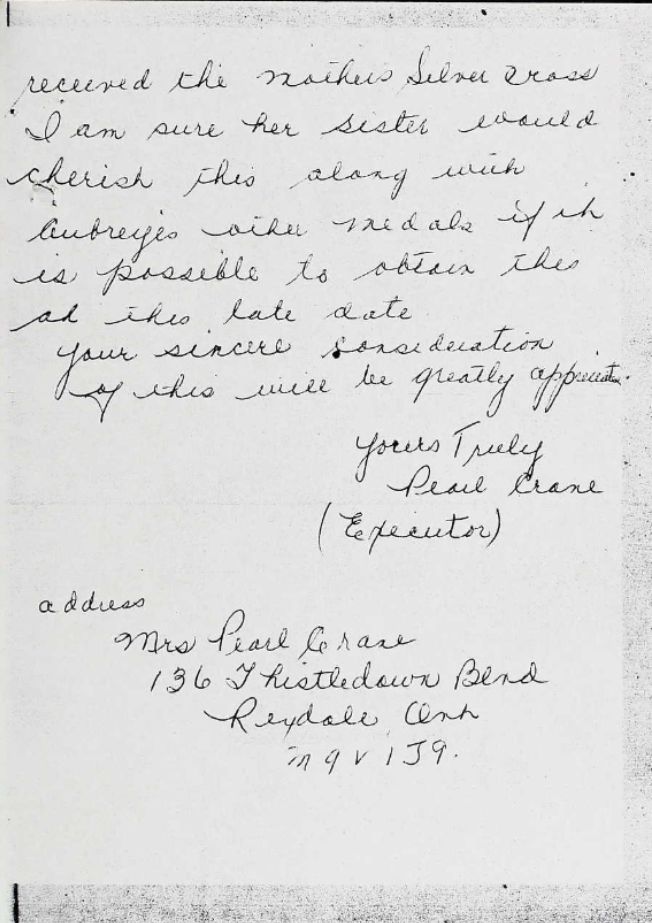 received the mothers Silver Cross
I am sure her sister would
cherish this along with
Aubreyes other medals if it
is possible to obtain this
at this late date
Your sincere consideration
of this will be greatly appreciated.
Yours Truly
Pearl Crane
(Executor)
address
Mrs Pearl Crane
136 Thistledown Blvd
Rexdale, Ont
M9V 1J9.